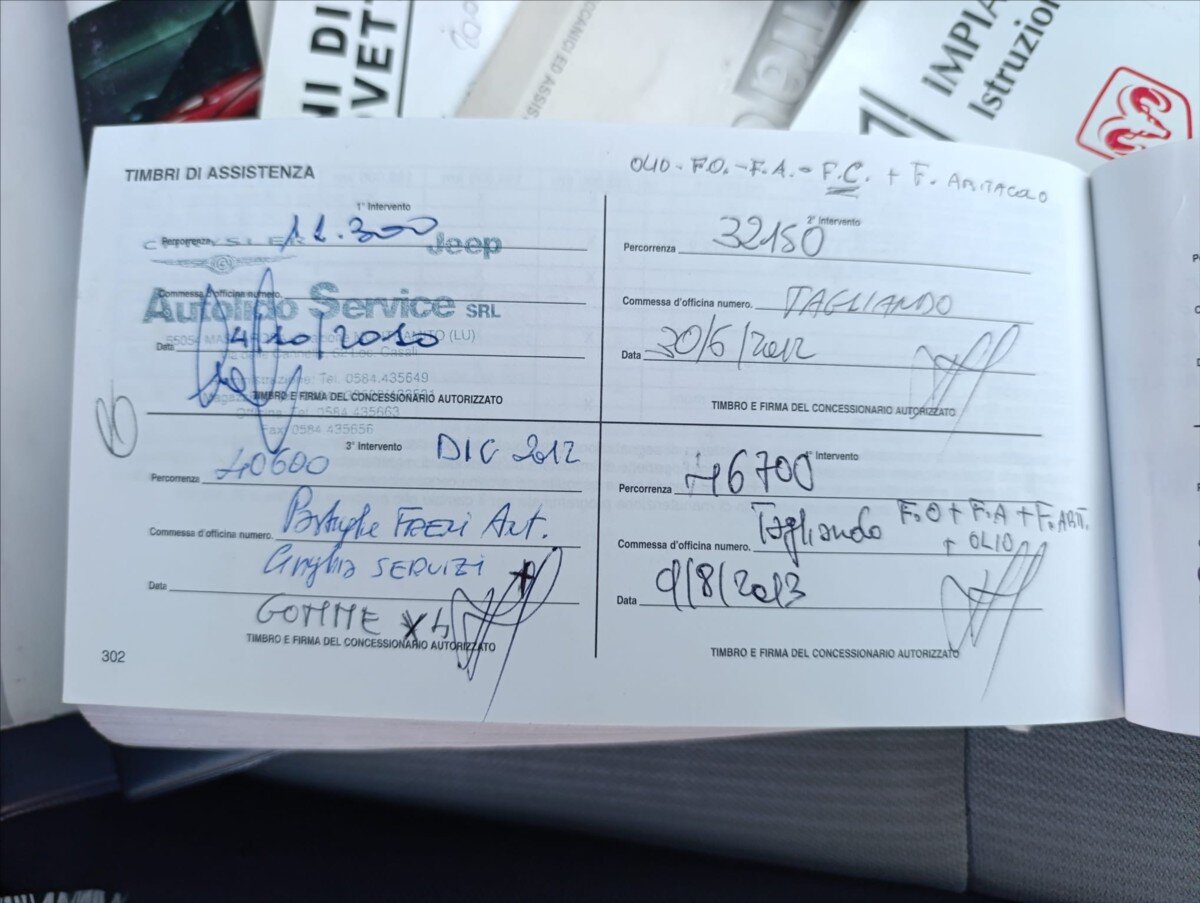 NI DI
OVETT
CCANICI ED ASSIS
IMPIA
Istruzion
TIMBRI DI ASSISTENZA
OLIO - F.O. - F.A. - F.C. + F. ABITACOLO
1° Intervento
Percorrenza 11.300
CHRYSLER Jeep
Commessa d'officina numero.
Autolido Service SRL
Data 14/10/2010
(LU)
Tel. 0584.435649
Tel. 0584.435663
Fax. 0584.435656
TIMBRO E FIRMA DEL CONCESSIONARIO AUTORIZZATO
2° Intervento
Percorrenza 32150
Commessa d'officina numero. TAGLIANDO
Data 30/6/2012
TIMBRO E FIRMA DEL CONCESSIONARIO AUTORIZZATO
3° Intervento DIC 2012
Percorrenza 40600
Commessa d'officina numero. FRENI Ant.
Cinghia SERVIZI
Data
GOMME X4
TIMBRO E FIRMA DEL CONCESSIONARIO AUTORIZZATO
4° Intervento
Percorrenza 46700
Commessa d'officina numero. Tagliando F.O + F.A + F. ABIT.
+ OLIO
Data 9/8/2013
TIMBRO E FIRMA DEL CONCESSIONARIO AUTORIZZATO
302